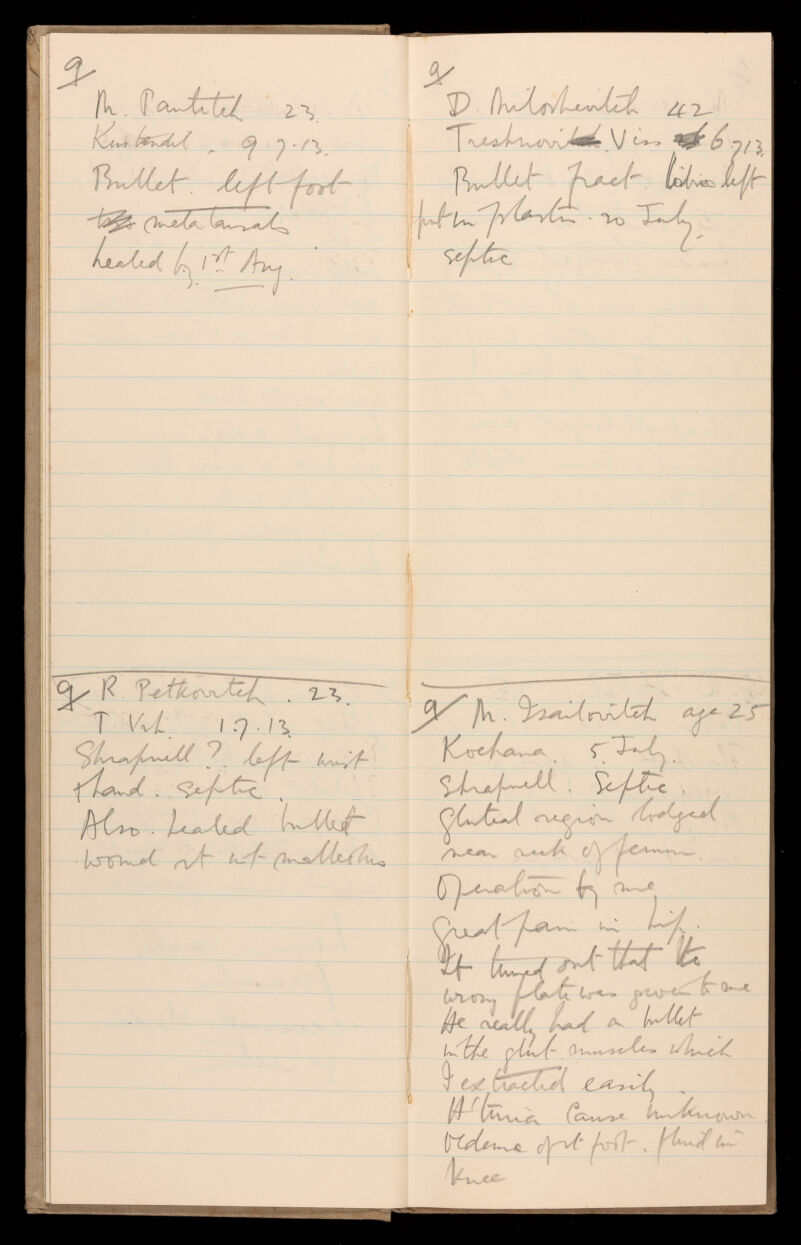 9/
M. Pantitch 23.
Kustendil. 9.7.13.
Bullet. left foot
metatarsals
healed by 1st Aug.
9/ R. Petkovitch. 23.
T. Vrh. 1.7.13.
Shrapnell? left wrist
& hand. septic.
Also healed bullet
wound rt int malleolus
9/
D. Miloshevitch 42
Viss 6.7.13.
Bullet fract. tibia left
put in plaster. 20 July.
septic
9/ M. Isailovitch age 25
Kochana. 5. July.
Shrapnell. Septic.
gluteal region lodged
near neck of femur.
Operation by me
great pain in hip.
It turned out that the
wrong plate was given to me
He really had a bullet
in the glut. muscles which
I extracted easily.
H'turia Cause unknown
Oedema of rt foot. fluid in
knee